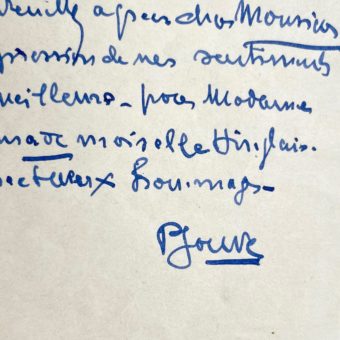 veuillez agréer cher Monsieur
pression de mes sentiments
eilleurs - pour Madame
made moiselle
pectueux hommages -
PJouve